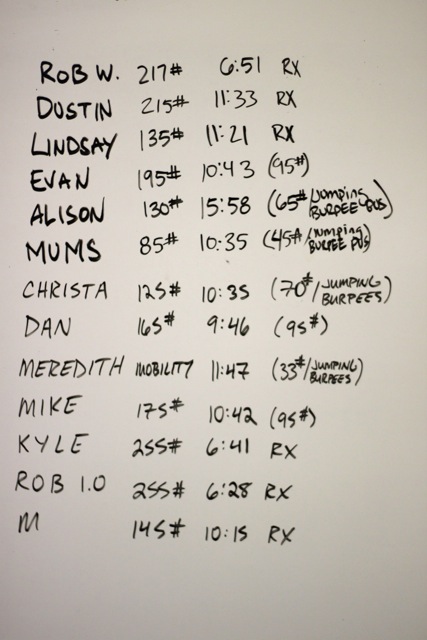 ROB W. 217# 6:51 RX
DUSTIN 215# 11:33 RX
LINDSAY 135# 11:21 RX
EVAN 195# 10:43 (95#)
ALISON 130# 15:58 (65#/JUMPING BURPEE PUS)
MUMS 85# 10:35 (45#/JUMPING BURPEE PUS)
CHRISTA 125# 10:35 (70#/JUMPING BURPEES)
DAN 165# 9:46 (95#)
MEREDITH MOBILITY 11:47 (33#/JUMPING BURPEES)
MIKE 175# 10:42 (95#)
KYLE 255# 6:41 RX
ROB 1.0 255# 6:28 RX
M 145# 10:15 RX